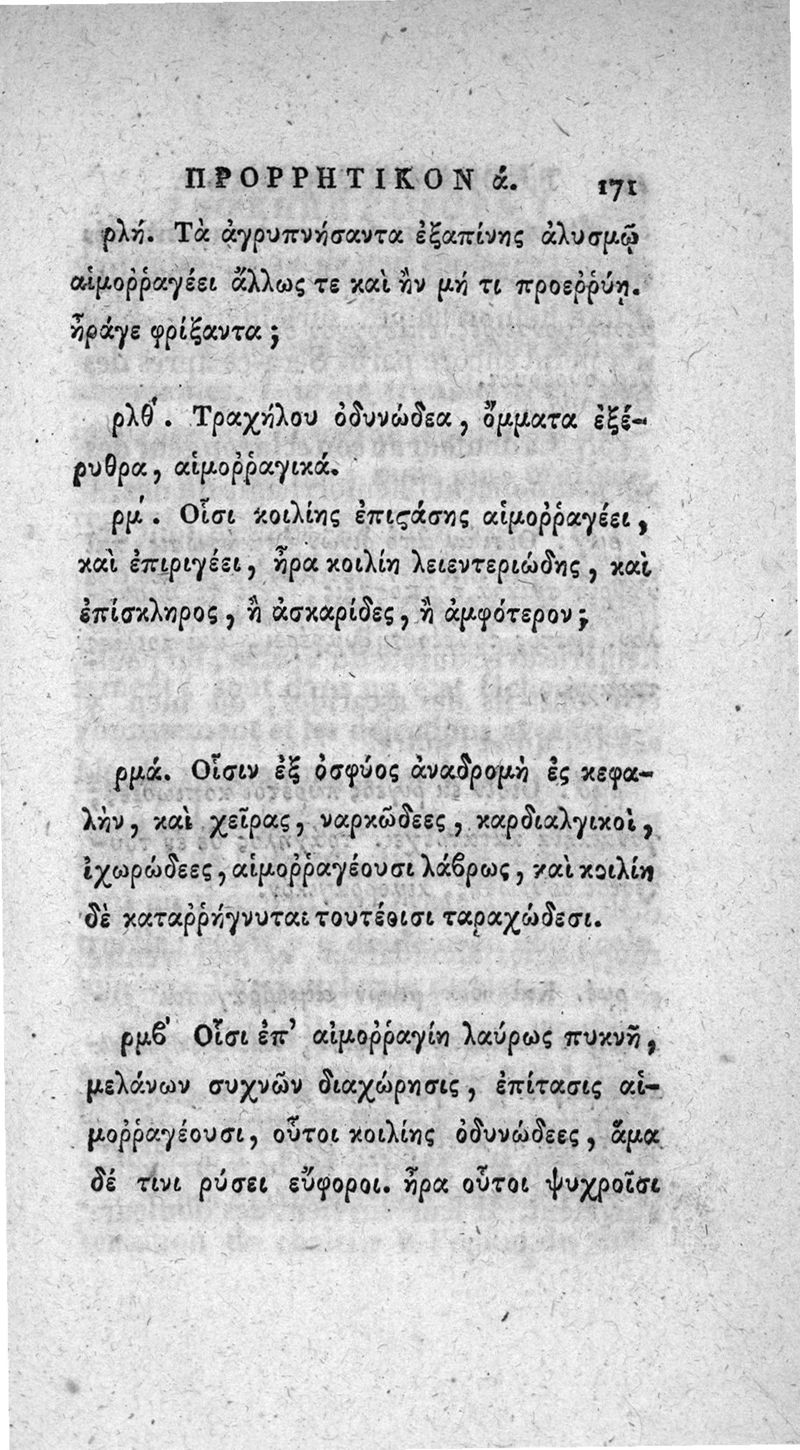 ΠΡΟΡΡΗΤΙΚΟΝ ά. 171
ρλή. Τὰ ἀγρυπνήσαντα ἐξαπίνης ἀλυσμῷ
αἱμοῤῥαγέει ἄλλως τε καὶ ἢν μή τι προεῤῥύῃ.
ἦράγε φρίξαντα ;
ρλθ΄. Τραχήλου ὀδυνώδεα, ὄμματα ἐξέ-
ρυθρα, αἱμοῤῥαγικά.
ρμ΄. Οἷσι κοιλίης ἐπιϛάσης αἱμοῤῥαγέει,
καὶ ἐπιριγέει, ἦρα κοιλίη λειεντεριώδης, καὶ
ἐπίσκληρος, ἢ ἀσκαρίδες, ἢ ἀμφότερον ;
ρμά. Οἷσιν ἐξ ὀσφύος ἀναδρομὴ ἐς κεφα-
λὴν, καὶ χεῖρας, ναρκώδεες, καρδιαλγικοὶ,
ἰχωρώδεες, αἱμοῤῥαγέουσι λάβρως, καὶ κοιλίη
δὲ καταῤῥήγνυται τουτέοισι ταραχώδεσι.
ρμϐ΄ Οἷσι ἐπ’ αἱμοῤῥαγίῃ λαύρως πυκνῇ,
μελάνων συχνῶν διαχώρησις, ἐπίτασις αἱ-
μοῤῥαγέουσι, οὗτοι κοιλίης ὀδυνώδεες, ἅμα
δέ τινι ρύσει εὔφοροι. ἦρα οὗτοι ψυχροῖσι